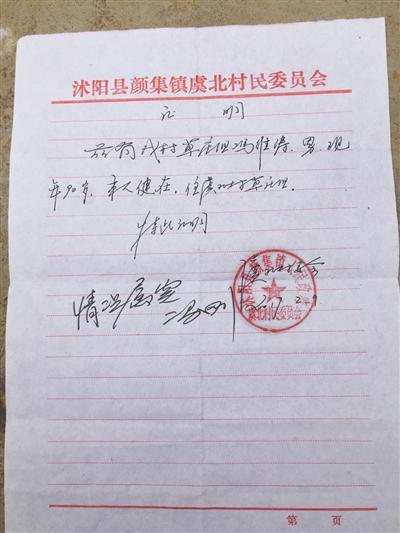 沭阳县颜集镇虞北村民委员会
证 明
兹有我村草庄组冯 男 现
年90岁，本人健在，住虞北村草庄组.
特此证明
情况属实
虞北村民委员会
第 页